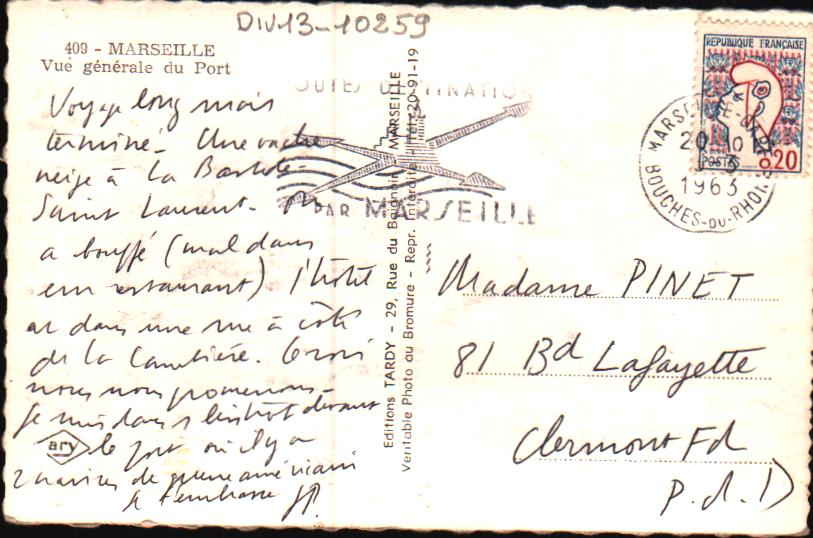 DIV13-10259
409 - MARSEILLE
Vue générale du Port
Voyage long mais
terminé. Une vache
neige à La Bastide
Saint Laurent. On
a bouffé (mal dans
un restaurant) l'hôtel
est dans une rue à côté
de la Canebière.
nous nous promenons.
Je suis dans l'bistrot devant
le port où il y a
2 navires de guerre américains
Je t'embrasse JP.
ary
Editions TARDY - 29, Rue du Baignoir - MARSEILLE
Véritable Photo au Bromure - Repr. Interdite - Tél. 20-91-19
TOUTES DESTINATIONS
PAR MARSEILLE
MARSEILLE-GARE
20-10
1963
BOUCHES-DU-RHONE
REPUBLIQUE FRANÇAISE
POSTES 0,20
Madame PINET
81 Bd Lafayette
Clermont Fd
P.d.D